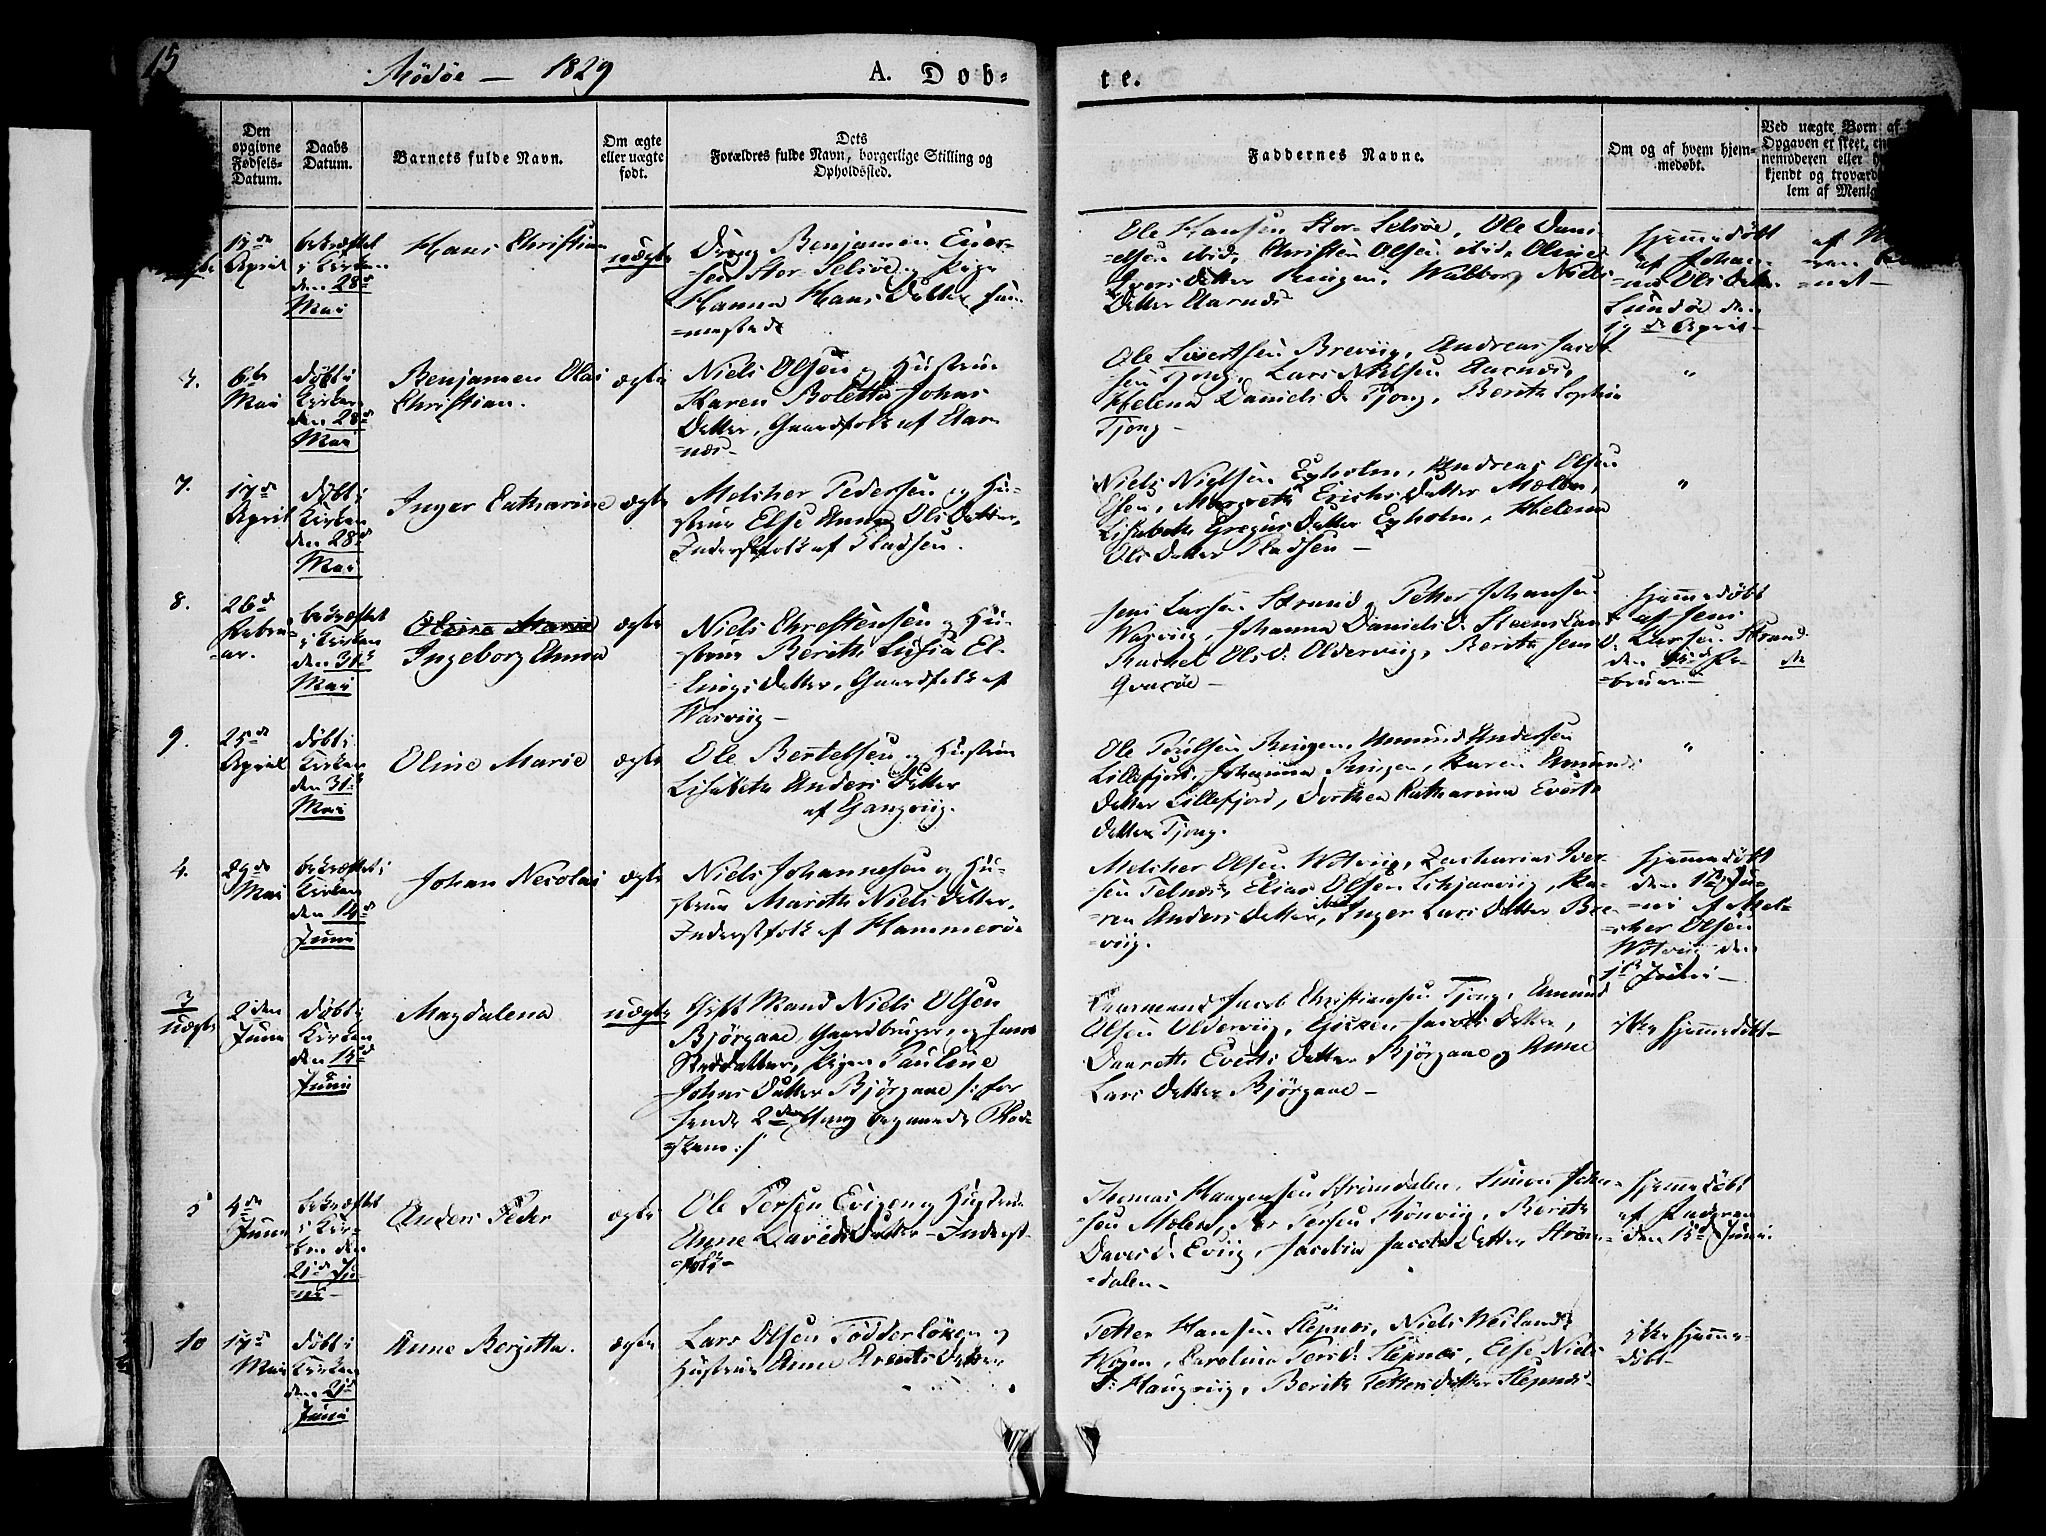 15
Rödöe — 1829
A. Dob-
te.
Den
opgivne
Fødsels-
Datum.
Daabs
Datum.
Barnets fulde Navn.
Om ægte
eller uægte
født.
Dets
Forældres fulde Navn, borgerlige Stilling og
Opholdssted.
Faddernes Navne.
Om og af hvem hjem-
medøbt.
Ved uægte Børn af
Opgaven er skeet, en
nemoderen eller
kjendt og troværd
lem af Menig
17de
April
bekræftet
i Kirken
den 28d
Mai
Hans Christian
uægte
Dreng Benjamin Evers-
sen Stor Selsöe og Pige
Hanna Hans Datter sam-
mesteds
Ole Hansen Stor-Selsöe, Ole Dani-
elsen ibid, Christen Olsen ibid, Oline
Ivers Datter Ringen, Walborg Niels
Datter Aarnes
hjemmedöbt
af Johan-
na Ols Datter
Lundöe den
19de April
6te
Mai
døbt i
Kirken
den 28d
Mai
Benjamen Olai
Christian.
ægte
Niels Olsen og Hustrue
Karen Bolette Johns
Datter, Gaardfolk af Aar-
næs
Ole Sivertsen Breviig, Andreas Jacob-
sen Tjong, Lars Nielsen Aarnæs,
Helena Daniels D. Tjong, Berith Sophia
Tjong —
"
7.
17de
April
døbt i
Kirken
den 28d
Mai
Inger Catharine
ægte
Melcher Pedersen og Hu-
strue Else Anna Ols Datter,
Inderstfolk af Pladsen.
Niels Nielsen Exholm, Andreas Olsen
Esøen, Margrethe Erichs Datter Molen,
Lisabeth Gregus Datter Exholm, Helena
Ols Datter Pladsen —
"
8.
26d
Febru-
ar.
bekræftet
i Kirken
den 31te
Mai
Oline Marie
Ingeborg Anna
ægte
Niels Christensen og Hu-
strue Berith Lusia El-
lings Datter, Gaardfolk af
Wasviig —
Jens Larsen Strand, Petter Johansen
Wasviig, Johanna Daniels D. Steensland
Rachel Ols D: Olderviig, Berith Jens D:
Qvarøe —
hjemmedöbt
af Jens
Larsen Strand
den Fe-
bruar
9.
25de
April
døbt i
Kirken
den 31te
Mai
Oline Marie
ægte
Ole Bertelsen og Hustrue
Lisabeth Anders Datter
af Gangviig.
Ole Poulsen Ringen, Amund Andersen
Lillefjord, Johanna Ringen, Karen Amunds
Datter Lillefjord, Dorthea Catharina Everts
Datter Tjong.
"
4.
29de
Mai
bekræftet i
Kirken
den 14d
Juni
Johan Nicolai
ægte
Niels Johannesen og Hu-
strue Marith Niels Datter,
Inderstfolk af Hammeröe
Melcher Olsen Wotviig, Zacharias Iver-
sen Telnes, Elias Olsen Selsjøeviig, Ka-
ren Anders Datter, Inger Lars Datter Bre-
viig.
hjemmedöbt
den 1te Ju-
ni af Mel-
cher Olsen
Wotviig den
1te Juni —
3
uægte
2den
Juni
døbt i
Kirken
den 14d
Juni
Magdalena
uægte
Gift Mand Niels Olsen
Bjørgaae, Gaardbruger, og hans
Steddatter, Pigen Pauline
Johns Datter Bjørgaae /: for
hende 2den Gang begaaede
:/
Jacob Christiansen Tjong, Amund
Olsen Olderviig, Jacobs Datter,
Daareth Everts Datter Bjørgaae og Anne
Lars Datter Bjørgaae —
ikke hjemmedöbt—
5
4de
Juni
bekræftet
i Kir-
ken den
21de Ju-
ni —
Anders Peder
ægte
Ole Persen Eviigen og Hustrue
Anne Davids Datter — Inderst-
folk —
Thomas Haagensen Strømdalen, Simon John-
sen Molen, Per Persen Rönviig, Berith
Davis D. Eviig, Jacobia Jacobs Datter Ström-
dalen —
hjemmedöbt
af Faderen
den 15d Juni.
10
17d
Mai
døbt i
Kirken
den 21d
Juni
Anne Bergitta.
ægte
Lars Olsen Födderløken og
Hustrue Anne Arents Datter
Petter Hansen Slepnæs, Niels Weiland,
Wogen, Carolina Pers D: Slepnæs, Else Niels
D: Haugviig, Berith Petters Datter Slepnæs
ikke hjemme-
döbt —